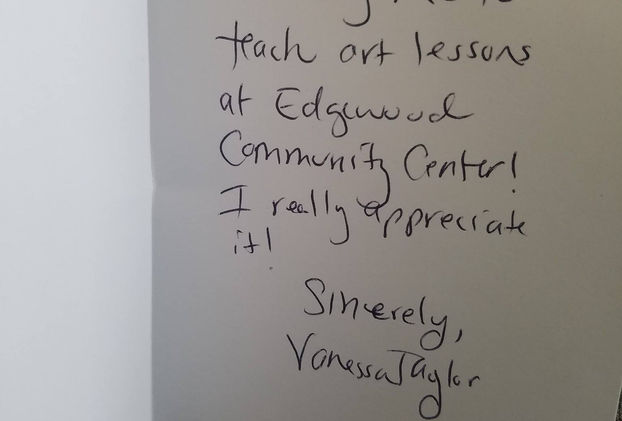 teach art lessons
at Edgewood
Community Center!
I really appreciate
it!
Sincerely,
Vanessa Taylor